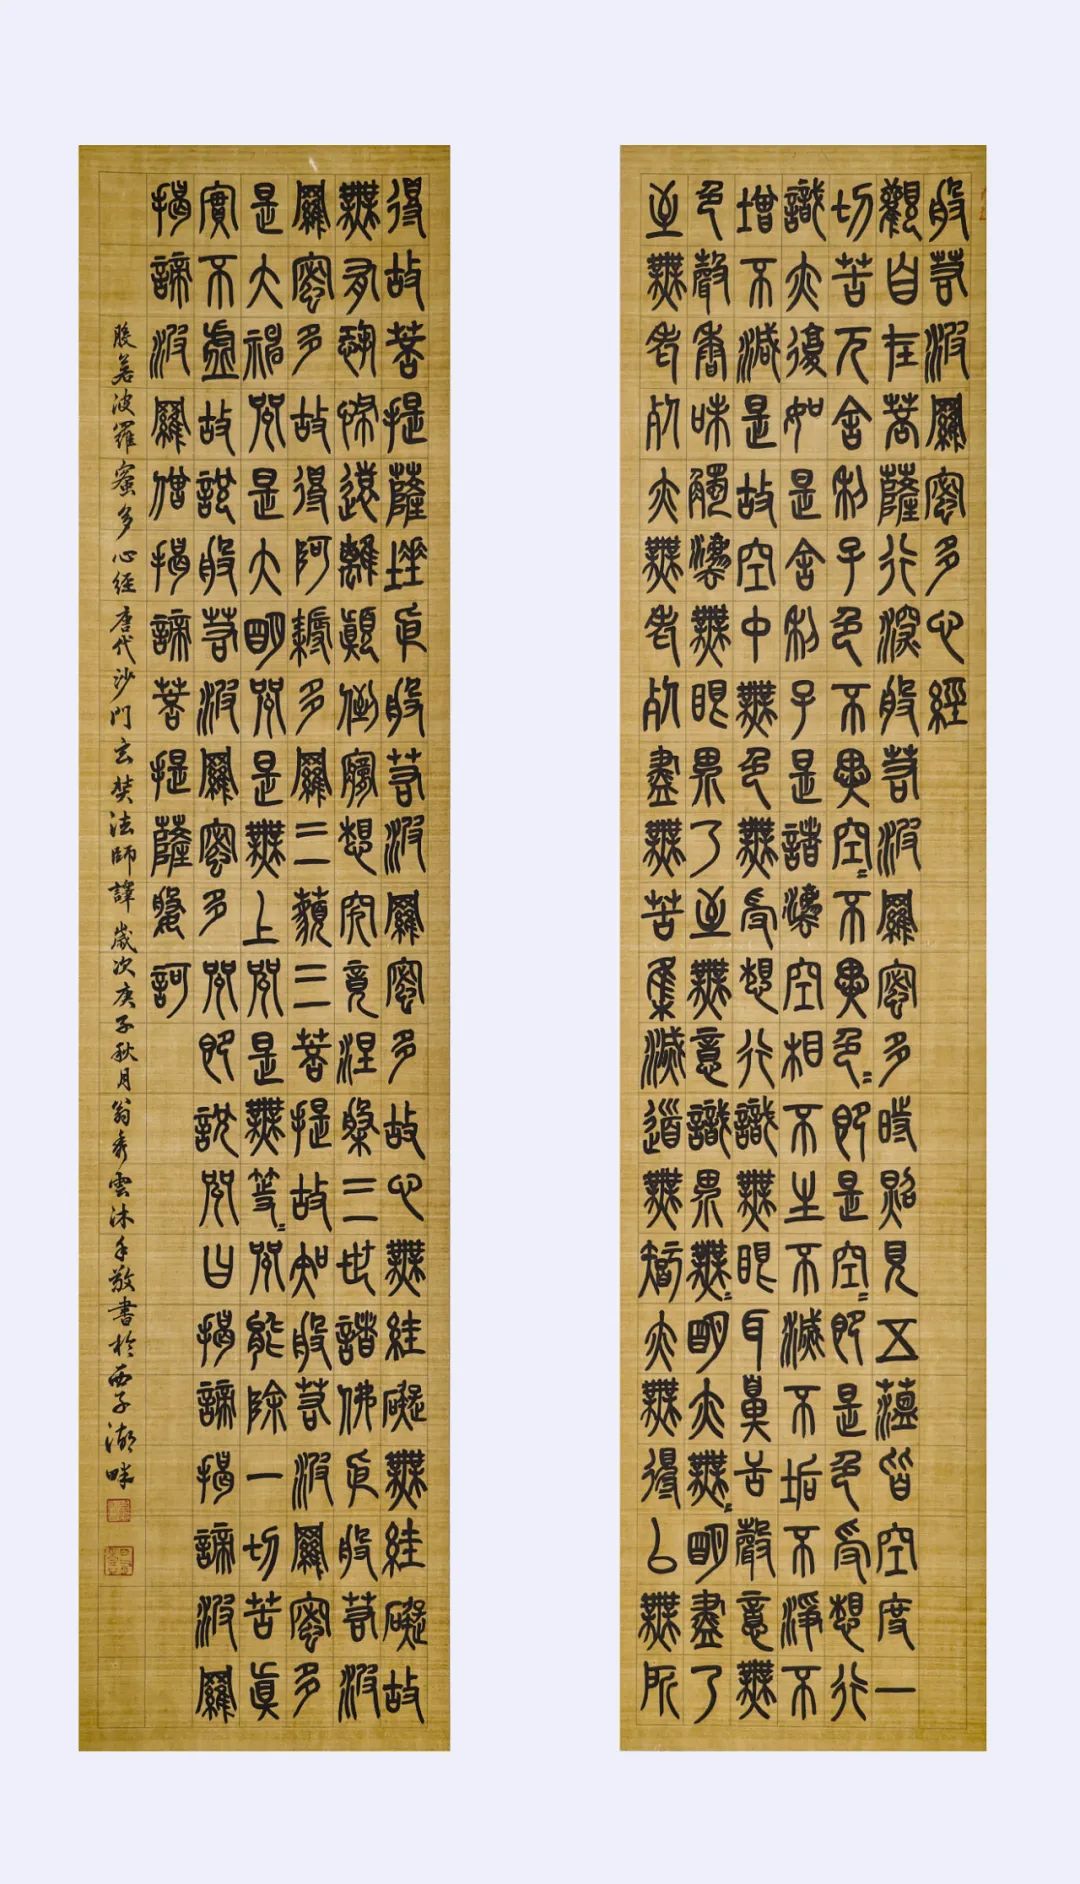 般若波羅密多心經
觀自在菩薩行深般若波羅密多時照見五蘊皆空度一
切苦厄舍利子色不異空〻不異色〻即是空〻即是色受想行
識亦復如是舍利子是諸灋空相不生不滅不垢不淨不
增不減是故空中無色無受想行識無眼耳鼻舌聲意無
色聲香味觸灋無眼界乃至無意識界無〻明亦無〻明盡乃
至無老死亦無老死盡無苦集滅道無智亦無得以無所
得故菩提薩埵依般若波羅密多故心無絓礙無絓礙故
無有恐怖遠離顛倒夢想究竟涅槃三世諸佛依般若波
羅密多故得阿耨多羅三藐三菩提故知般若波羅密多
是大神咒是大明咒是無上咒是無等〻咒能除一切苦真
實不虛故說般若波羅密多咒即說咒曰揭諦揭諦波羅
揭諦波羅僧揭諦菩提薩婆訶
般若波羅蜜多心經 唐代沙門玄奘法師譯 歲次庚子秋月翁秀雲沐手敬書於西子湖畔